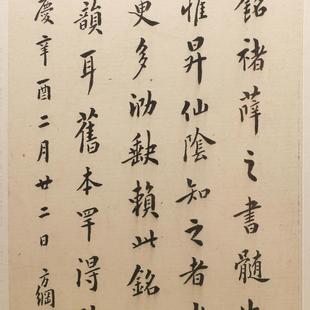 銘褚薛之書髓
惟昇仙陰知之者
更多泐缺賴此銘
韻耳舊本罕得
慶辛酉二月廿二日方綱